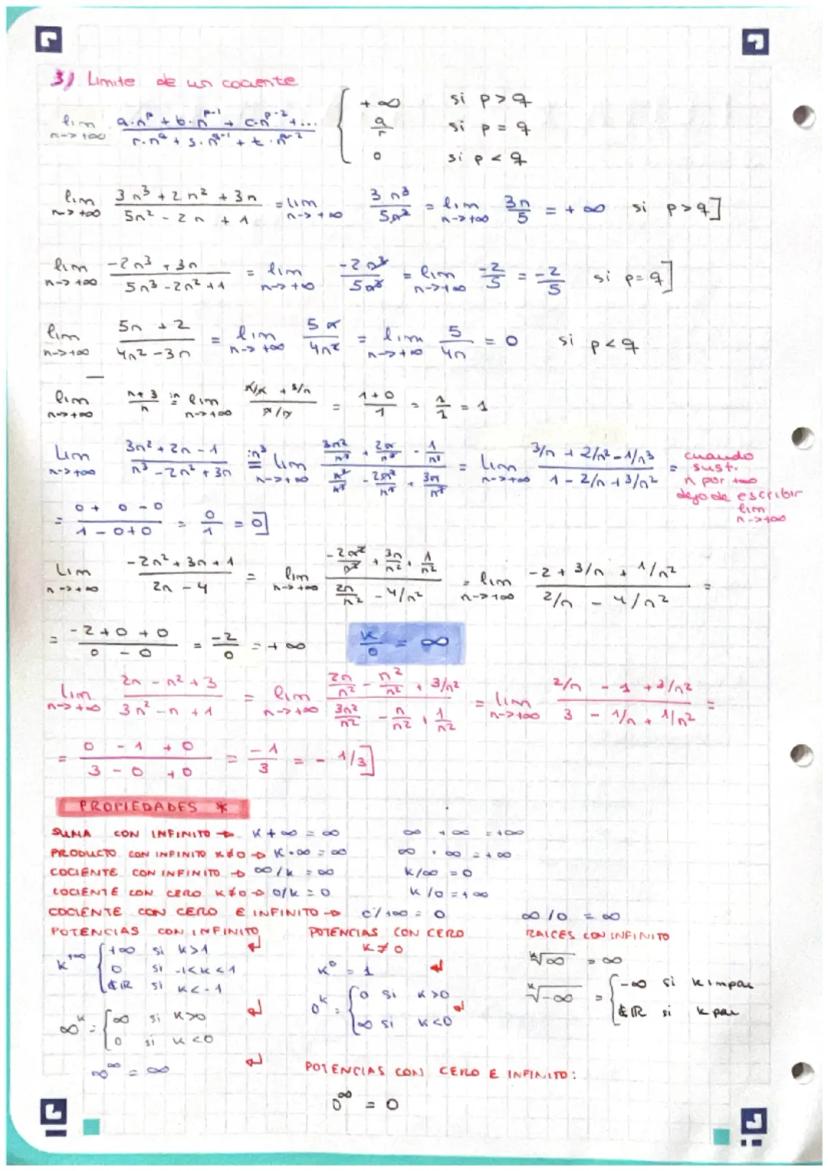 3) Limite de un cociente
lim n->+∞ (a·n^p + b·n^(p-1) + c·n^(p-2) + ...) / (r·n^q + s·n^(q-1) + t·n^(q-2)) { +∞ si p>q
a/r si p = q
0 si p < q
lim n->+∞ (3n³ + 2n² + 3n) / (5n² - 2n + 1) = lim n->+∞ 3n³/5n² = lim n->+∞ 3n/5 = +∞ si p>q]
lim n->+∞ (-2n³ + 3n) / (5n³ - 2n² + 1) = lim n->+∞ -2n³/5n³ = lim n->+∞ -2/5 = -2/5 si p=q]
lim n->+∞ (5n + 2) / (4n² - 3n) = lim n->+∞ 5n/4n² = lim n->+∞ 5/4n = 0 si p<q
lim n->+∞ (n+3)/n =(:n) lim n->+∞ (n/n + 3/n) / (n/n) = (1+0)/1 = 1/1 = 1
Lim n->+∞ (3n² + 2n - 1) / (n³ - 2n² + 3n) =(:n³) lim n->+∞ (3n²/n³ + 2n/n³ - 1/n³) / (n³/n³ - 2n²/n³ + 3n/n³) = Lim n->+∞ (3/n + 2/n² - 1/n³) / (1 - 2/n + 3/n²) =
cuando
sust.
n por +∞
dejo de escribir
lim
n->+∞
= (0 + 0 - 0) / (1 - 0 + 0) = 0/1 = 0]
Lim n->+∞ (-2n² + 3n + 1) / (2n - 4) = lim n->+∞ (-2n²/n² + 3n/n² + 1/n²) / (2n/n² - 4/n²) = lim n->+∞ (-2 + 3/n + 1/n²) / (2/n - 4/n²) =
= (-2 + 0 + 0) / (0 - 0) = -2/0 = +∞ K/0 = ∞
Lim n->+∞ (2n - n² + 3) / (3n² - n + 1) = lim n->+∞ (2n/n² - n²/n² + 3/n²) / (3n²/n² - n/n² + 1/n²) = lim n->+∞ (2/n - 1 + 3/n²) / (3 - 1/n + 1/n²) =
= (0 - 1 + 0) / (3 - 0 + 0) = -1/3 = - 1/3]
PROPIEDADES *
SUMA CON INFINITO → K+∞ = ∞ ∞ + ∞ = +∞
PRODUCTO CON INFINITO K≠0 → K·∞ = ∞ ∞ · ∞ = +∞
COCIENTE CON INFINITO → ∞/K = ∞ K/∞ = 0
COCIENTE CON CERO K≠0 → 0/K = 0 K/0 = +∞
COCIENTE CON CERO E INFINITO → 0/+∞ = 0 ∞/0 = ∞
POTENCIAS CON INFINITO
K^+∞ { +∞ si K>1
0 si -1<K<1
∉ℝ si K<-1
∞^K = { ∞ si K>0
0 si K<0
∞^∞ = ∞
POTENCIAS CON CERO
K≠0
K⁰ = 1
0^K = { 0 si K>0
∞ si K<0
RAICES CON INFINITO
ᴷ√∞ = ∞
ᴷ√-∞ = { -∞ si K impar
∉ℝ si K par
POTENCIAS CON CERO E INFINITO:
0^∞ = 0